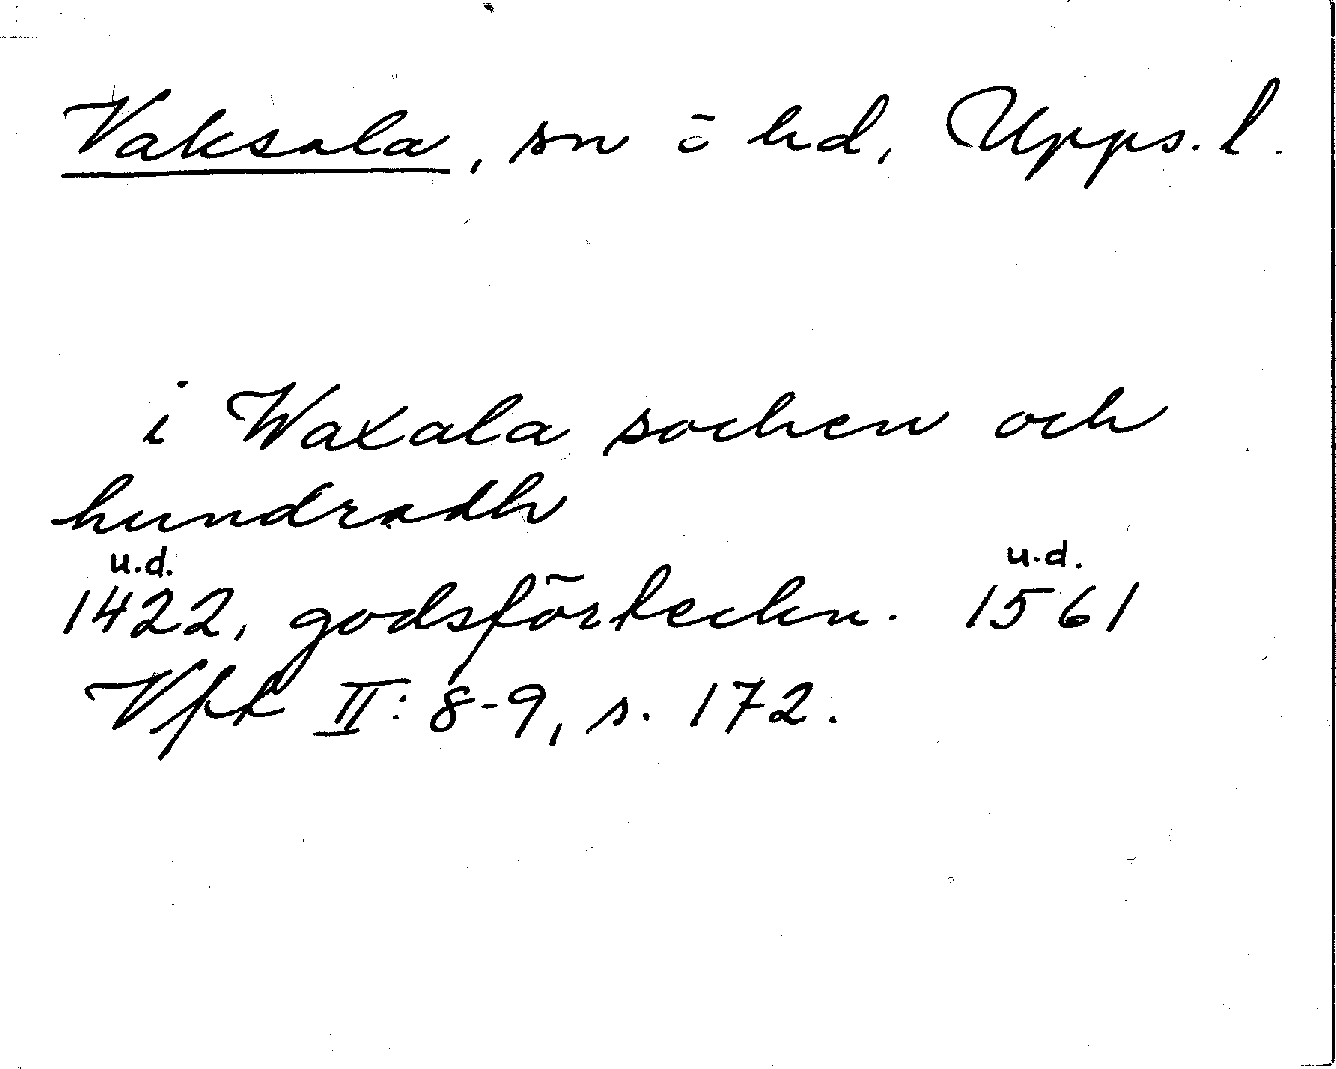 Vaksala, sn o hd, Upps. l.
i Waxala sochen och
hundradh
u.d. u.d.
1422, godsförteckn. 1561
Vfk II: 8-9, s. 172.